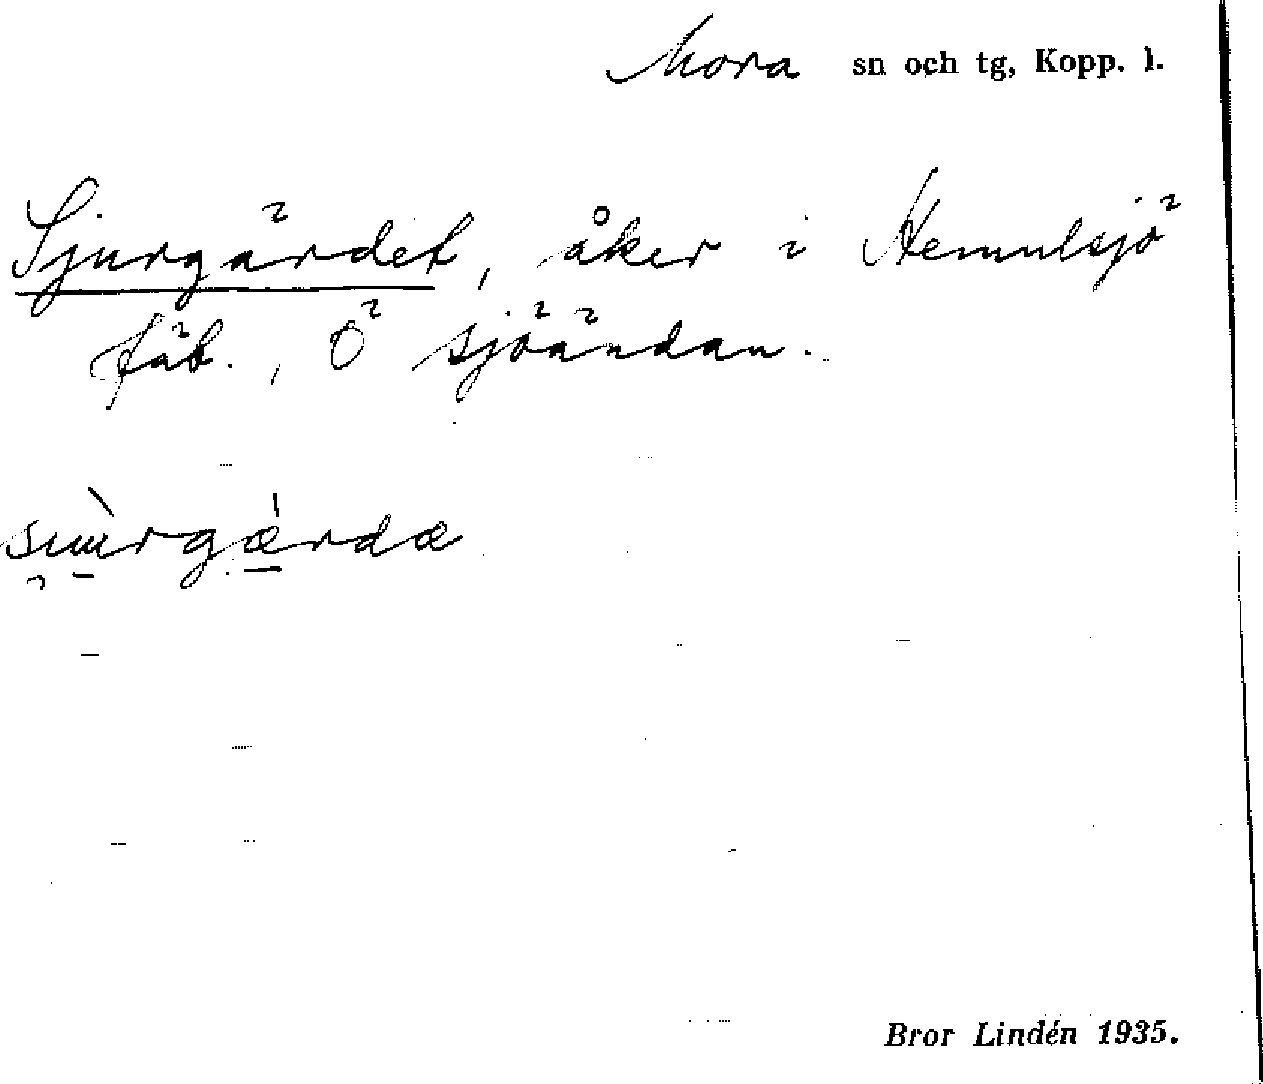 Mora sn och tg, Kopp. l.
Sjurgärdet, åker i Hemulsjö
fäb., Ö sjöändan.
Bror Lindén 1935.